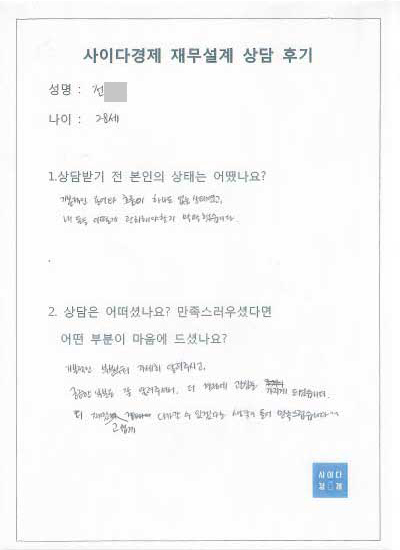 사이다경제 재무설계 상담 후기
성명 : 전
나이 : 28세
1.상담받기 전 본인의 상태는 어땠나요?
기본적인 흐름이 하나도 없는 상태였고,
내 돈을 어떻게 관리해야할지 막막했습니다.
2. 상담은 어떠셨나요? 만족스러우셨다면
어떤 부분이 마음에 드셨나요?
기본적인 부분부터 자세히 알려주시고,
궁금한 부분을 잘 알려주셔서, 더 경제에 관심을 가지게 되었습니다.
더 쉽게 다가갈 수 있겠다는 생각이 들어 만족스럽습니다~
사이다
경제